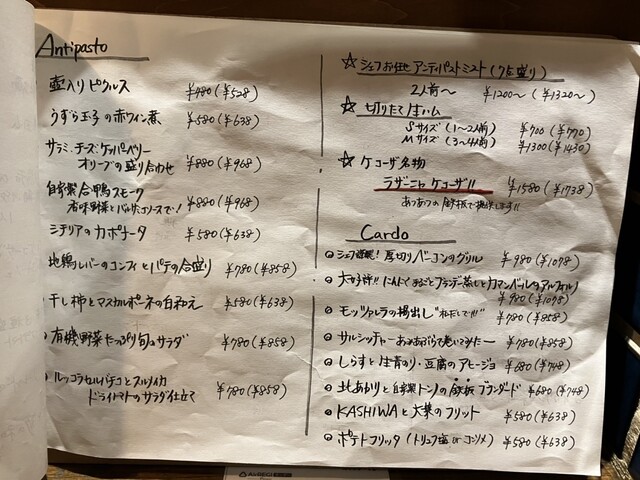 Antipasto
壺入りピクルス ¥480(¥528)
うずら玉子の赤ワイン煮 ¥580(¥638)
サラミ・チーズ・ケッパーベリー
オリーブの盛り合わせ ¥880(¥968)
自家製合鴨スモーク
香味野菜とバルサミコソースで! ¥880(¥968)
シチリアのカポナータ ¥580(¥638)
地鶏レバーのコンフィとパテの合盛り ¥780(¥858)
干し柿とマスカルポーネの白和え ¥580(¥638)
有機野菜たっぷり旬のサラダ ¥780(¥858)
ルッコラセルバチコとスルメイカ
ドライトマトのサラダ仕立て ¥780(¥858)
☆シェフお任せ アンティパストミスト(7点盛り)
2人前〜 ¥1200〜(¥1320〜)
☆切りたて生ハム
Sサイズ(1〜2人前) ¥700(¥770)
Mサイズ(3〜4人前) ¥1300(¥1430)
☆ケコーザ名物
ラザーニャ ケコーザ!! ¥1580(¥1738)
あつあつの鉄板で提供します!!
Cardo
シェフ 厚切りベーコンのグリル ¥980(¥1078)
¥980(¥1078)
モッツァレラの揚出し ¥780(¥858)
サルシッチャ ¥780(¥858)
しらすと生青のり・豆腐のアヒージョ ¥680(¥748)
北あかりと自家製トンノの鉄板ブランダード ¥680(¥748)
KASHIWAと大葉のフリット ¥580(¥638)
ポテトフリッタ(トリュフ塩 or コンソメ) ¥580(¥638)